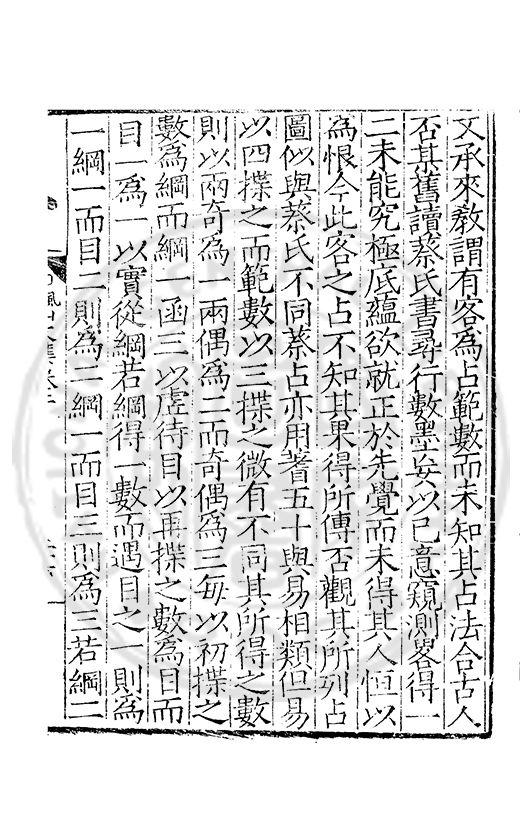 文承來敎謂有客爲占範數而未知其占法合古人
否某舊讀蔡氏書尋行數墨妄以已意窺測畧得一
二未能究極底蘊欲就正於先覺而未得其人恒以
爲恨今此客之占不知其果得所傳否觀其所列占
圖似與蔡氏不同蔡占亦用蓍五十與易相類但易
以四揲之而範數以三揲之微有不同其所得之數
則以兩奇爲一兩偶爲二而奇偶爲三每以初揲之
數爲綱而綱一函三以虛待目以再揲之數爲目而
目一爲一以實從綱若綱得一數而遇目之一則爲
一綱一而目二則爲二綱一而目三則爲三若綱二